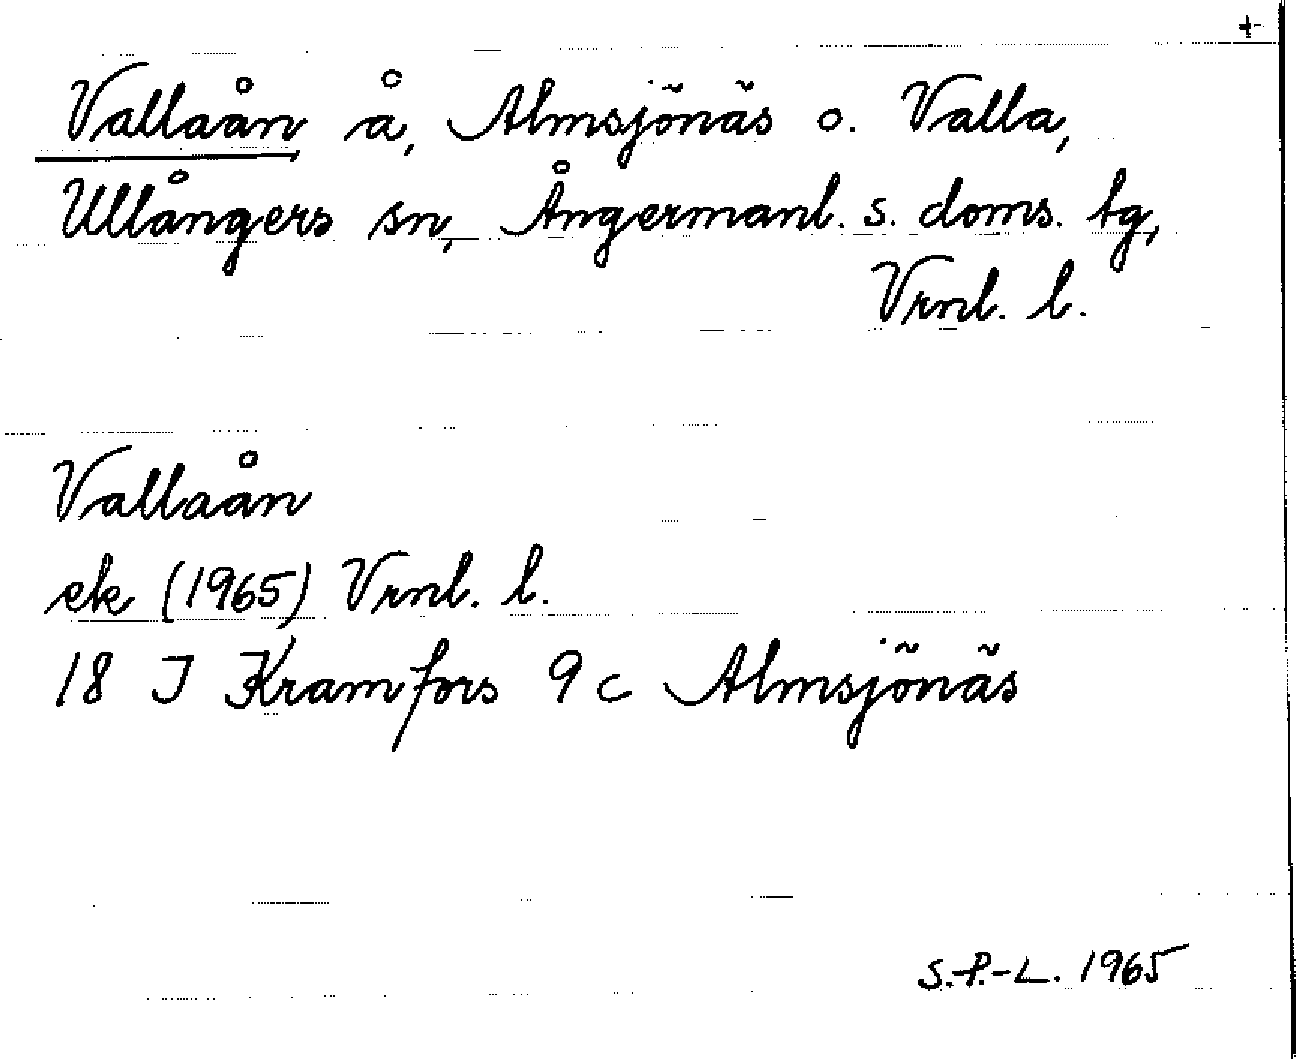 +
Vallaån å, Almsjönäs o. Valla,
Ullångers sn, Ångermanl. s. doms. tg,
Vrnl. l.
Vallaån
ek (1965) Vrnl. l.
18 I Kramfors 9 c Almsjönäs
S.P.-L. 1965